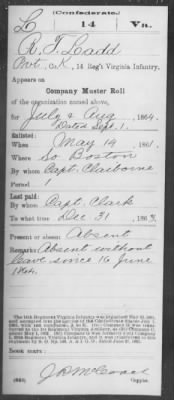 (Confederate.)
L 14 Va.
R. T. Ladd
Pvt., Co. K, 14 Reg't Virginia Infantry.
Appears on
Company Muster Roll
of the organization named above,
for July & Aug, 1864.
Dated Sept. 1.
Enlisted:
When May 14, 1861.
Where So Boston
By whom Capt. Claiborne
Period 1
Last paid:
By whom Capt. Clark
To what time Dec 31, 1863.
Present or absent Absent
Remarks: Absent without
leave since 16 June
1864.
Book mark:
Copyist.